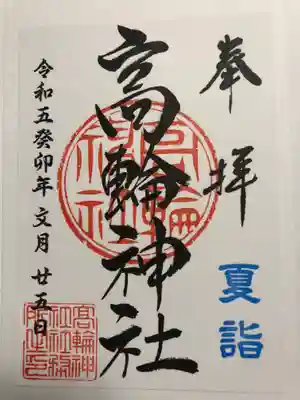 奉拝
夏詣
高輪神社
令和五癸卯年 文月 廿五日
高輪神社
髙輪神
社社務
所之印